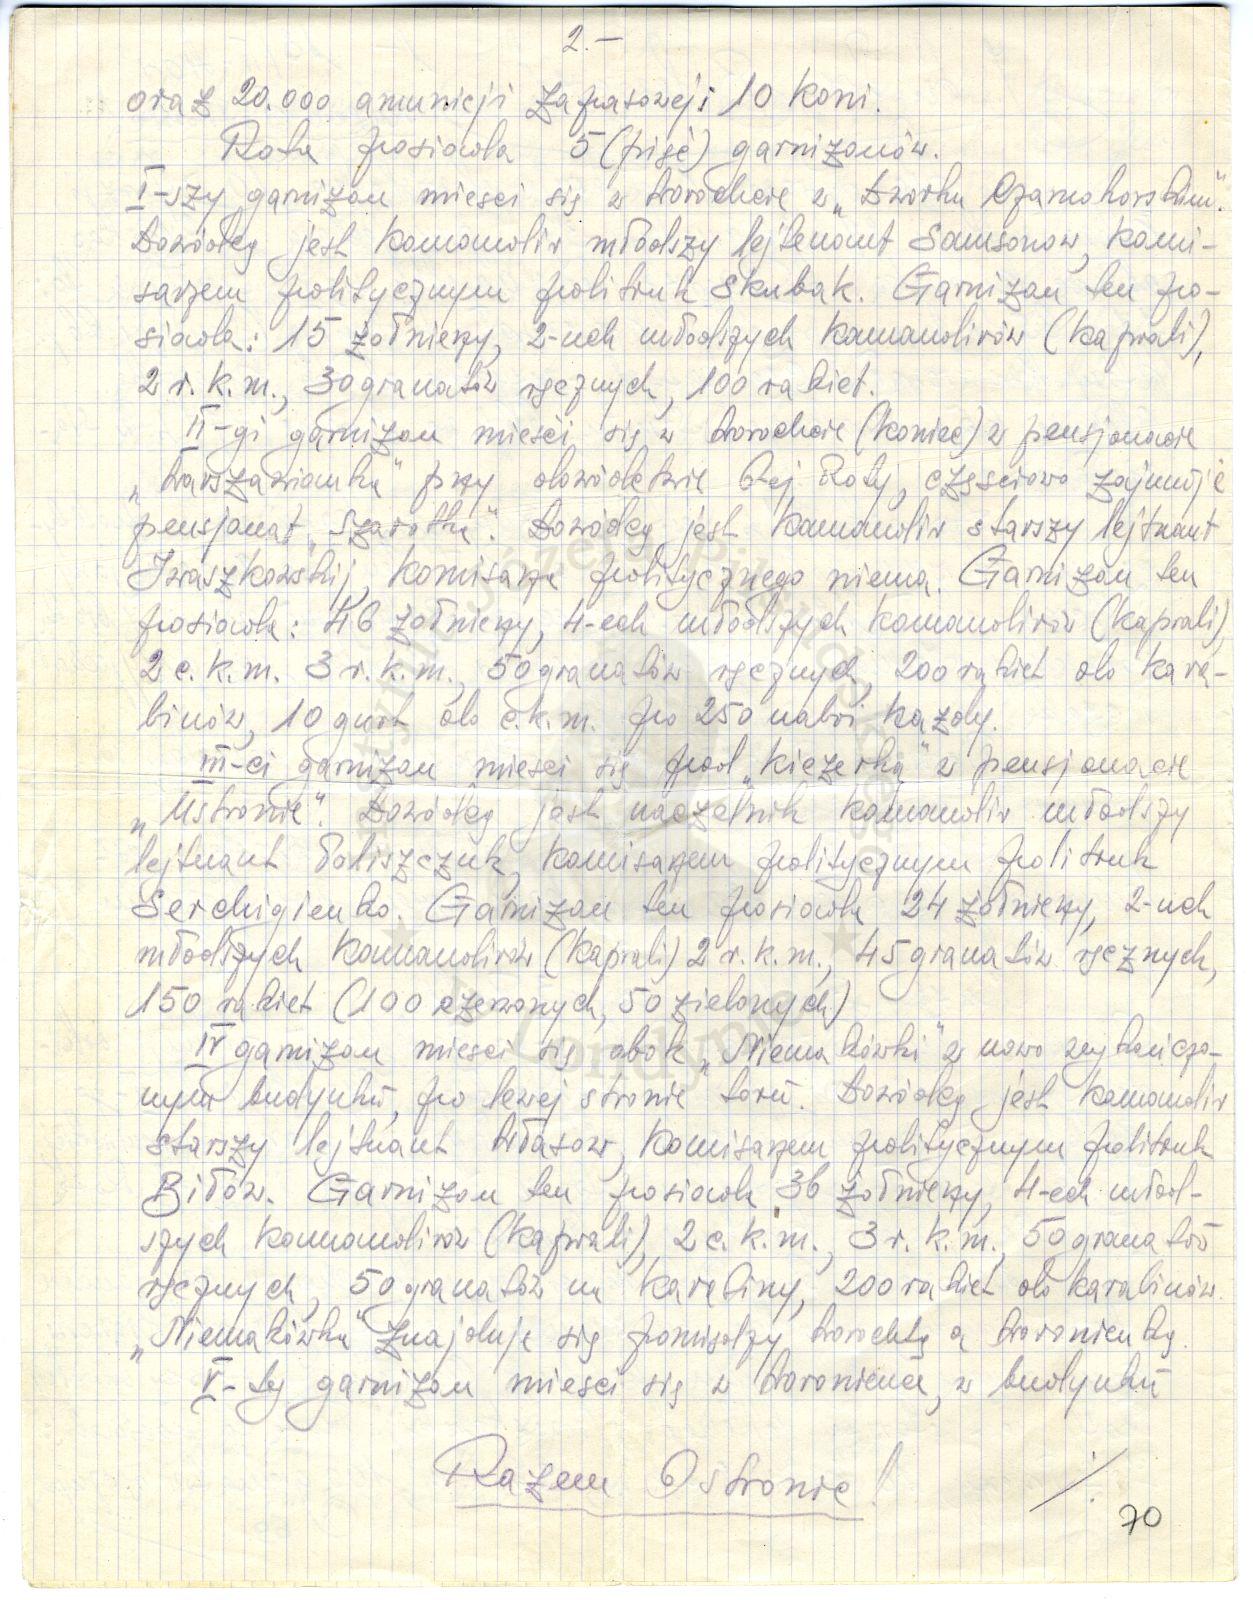 2.—
oraz 20.000 amunicji zapasowej i 10 koni.
Rota posiada 5 (pięć) garnizonów.
I-szy garnizon mieści się w Worochcie w „Dworku Czarnohorskim”.
Dowódcą jest komandir młodszy lejtenant Samsonow, komi-
sarzem politycznym politruk Skubak. Garnizon ten po-
siada: 15 żołnierzy, 2-uch młodszych komandirów (kaprali),
2 r.k.m., 30 granatów ręcznych, 100 rakiet.
II-gi garnizon mieści się w Worochcie (koniec) w pensjonacie
„Warszawianka” przy dowództwie 6ej Roty, częściowo zajmuje
pensjonat „Szarotka”. Dowódcą jest komandir starszy lejtnant
Iwaszkowskij, komisarza politycznego niema. Garnizon ten
posiada: 46 żołnierzy, 4-ech młodszych komandirów (kaprali),
2 c.k.m. 3 r.k.m., 50 granatów ręcznych, 200 rakiet do kara-
binów, 10 gurt do c.k.m. po 250 naboi każdy.
III-ci garnizon mieści się pod „Kiczerką” w pensjonacie
„Ustronie”. Dowódcą jest naczelnik komandir młodszy
lejtnant Woliszczuk, komisarzem politycznym politruk
Serchigienko. Garnizon ten posiada 24 żołnierzy, 2-uch
młodszych komandirów (kaprali) 2 r.k.m., 45 granatów ręcznych,
150 rakiet (100 czerwonych, 50 zielonych)
IV garnizon mieści się obok „Niemakówki” w nowo wykończo-
nym budynku, po lewej stronie toru. Dowódcą jest komandir
starszy lejtnant Własow, komisarzem politycznym politruk
Biłow. Garnizon ten posiada 36 żołnierzy, 4-ech młod-
szych komandirów (kaprali), 2 c.k.m., 3 r.k.m., 50 granatów
ręcznych, 50 granatów na karabiny, 200 rakiet do karabinów.
„Niemakówka” znajduje się pomiędzy Worochtą a Woronienką.
V-ty garnizon mieści się w Woronience, w budynku
Razem Ostronie!
./.
70
Instytut Józefa Piłsudskiego
w Londynie